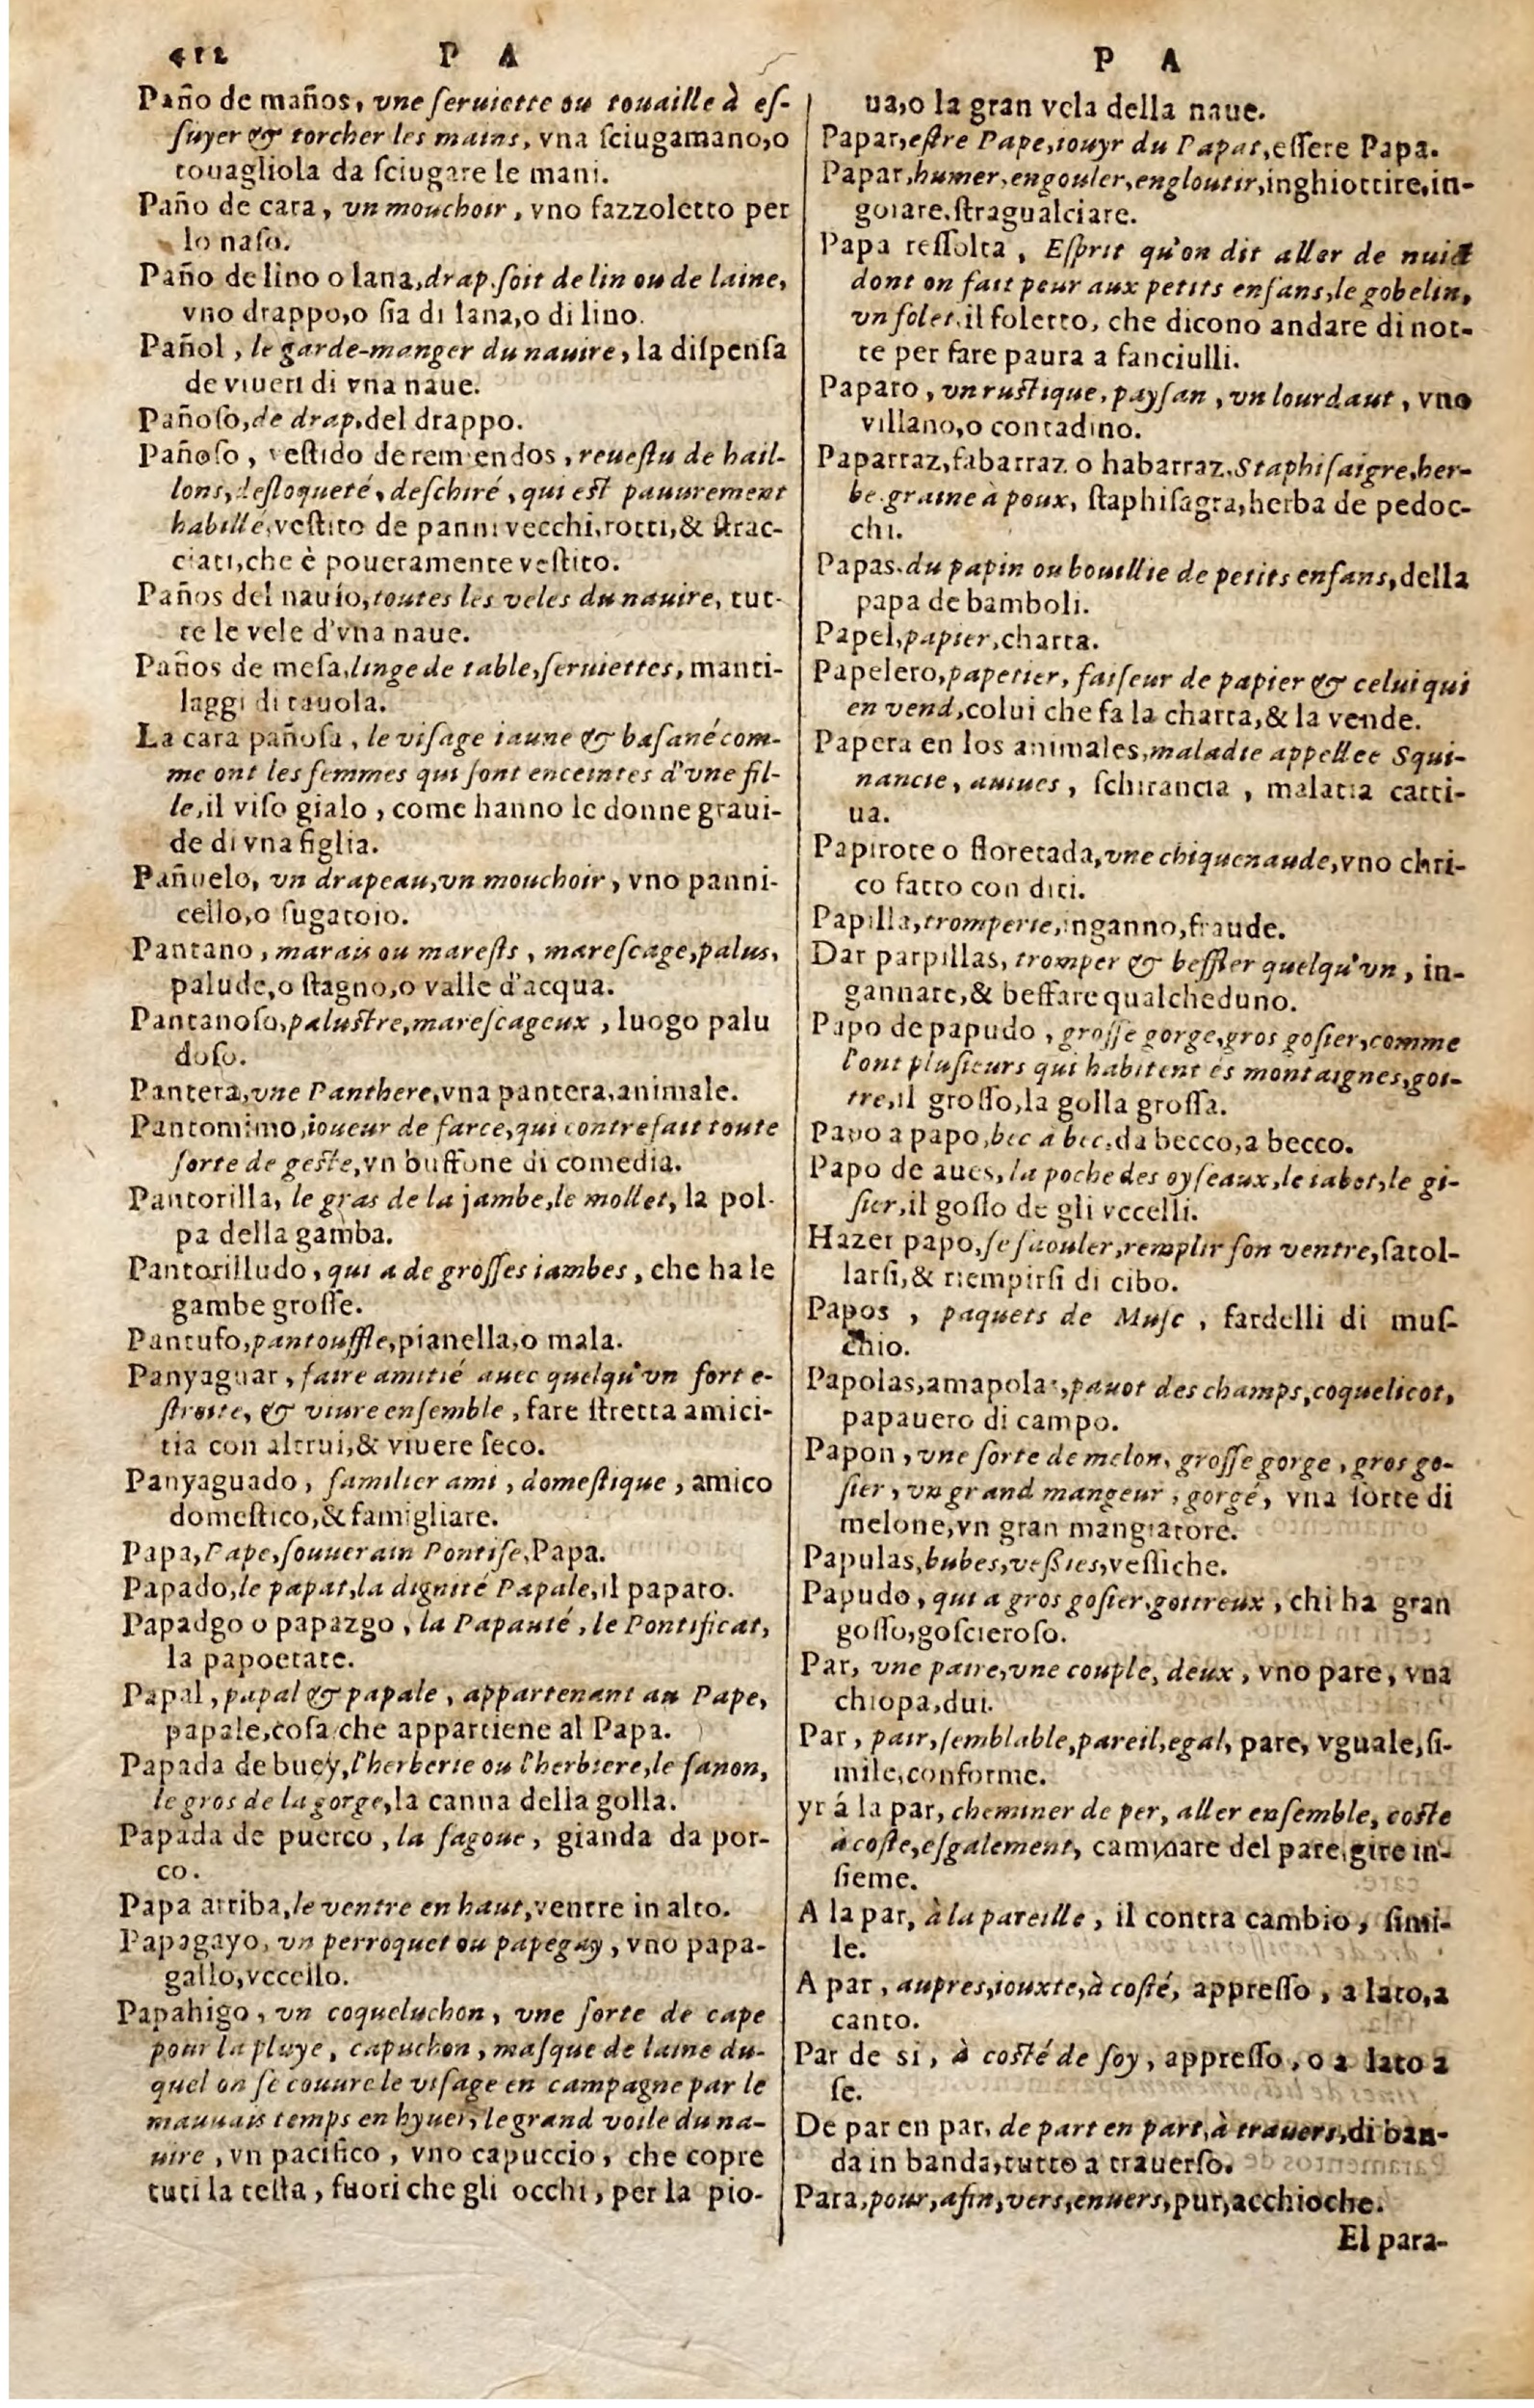 412 P A
Paño de maños, vne ſeruiette ou touaille à eſ-
ſuyer & torcher les mains, vna ſciugamano,o
touagliola da ſciugare le mani.
Paño de cara, vn mouchoir, vno fazzoletto per
lo naſo.
Paño de lino o lana,drap,ſoit de lin ou de laine,
vno drappo,o ſia di lana,o di lino.
Pañol, le garde-manger du nauire, la diſpenſa
de viueri di vna naue.
Pañoſo,de drap,del drappo.
Pañoſo, veſtido de remendos, reueſtu de hail-
lons,deſloqueté, deſchiré, qui est pauurement
habillé,veſtito de panni vecchi,rotti,& ſtrac-
ciati,che è poueramente veſtito.
Paños del nauío,toutes les veles du nauire, tut-
te le vele d'vna naue.
Paños de meſa,linge de table,ſeruiettes, manti-
laggi di tauola.
La cara pañoſa, le viſage iaune & baſané com-
me ont les femmes qui ſont enceintes d'vne fil-
le,il viſo gialo, come hanno le donne graui-
de di vna figlia.
Pañuelo, vn drapeau,vn mouchoir, vno panni-
cello,o ſugatoio.
Pantano, marais ou mareſts, mareſcage,palus,
palude,o ſtagno,o valle d'acqua.
Pantanoſo,palustre,mareſcageux, luogo palu
doſo.
Pantera,vne Panthere,vna pantera,animale.
Pantomimo,ioueur de farce,qui contrefait toute
ſorte de geste,vn buffone di comedia.
Pantorilla, le gras de la jambe,le mollet, la pol-
pa della gamba.
Pantorilludo, qui a de groſſes iambes, che ha le
gambe groſſe.
Pantufo,pantouffle,pianella,o mala.
Panyaguar, faire amitié auec quelqu'vn fort e-
ſtroite, & viure enſemble, fare ſtretta amici-
tia con altrui,& viuere ſeco.
Panyaguado, familier ami, domeſtique, amico
domeſtico,& famigliare.
Papa,Pape,ſouuerain Pontife,Papa.
Papado,le papat,la dignité Papale,il papato.
Papadgo o papazgo, la Papauté, le Pontificat,
la papoetate.
Papal, papal & papale, appartenant au Pape,
papale,coſa che appartiene al Papa.
Papada de buey,l'herberie ou l'herbiere,le fanon,
le gros de la gorge,la canna della golla.
Papada de puerco, la fagoue, gianda da por-
co.
Papa arriba,le ventre en haut,ventre in alto.
Papagayo, vn perroquet ou papegay, vno papa-
gallo,vccello.
Papahigo, vn coqueluchon, vne ſorte de cape
pour la pluye, capuchon, maſque de laine du-
quel on ſe couure le viſage en campagne par le
mauuais temps en hyuer, le grand voile du na-
uire, vn pacifico, vno capuccio, che copre
tuti la teſta, fuori che gli occhi, per la pio-
P A
ua,o la gran vela della naue.
Papar,eſtre Pape,iouyr du Papat,eſſere Papa.
Papar,humer,engouler,engloutir,inghiottire,in-
goiare,ſtragualciare.
Papa reſſolta, Eſprit qu'on dit aller de nuict
dont on fait peur aux petits enfans,le gobelin,
vn folet,il foletto, che dicono andare di not-
te per fare paura a fanciulli.
Paparo, vn rustique, payſan, vn lourdaut, vno
villano,o contadino.
Paparraz,fabarraz o habarraz,Staphiſaigre,her-
be,graine à poux, ſtaphiſagra,herba de pedoc-
chi.
Papas,du papin ou bouillie de petits enfans,della
papa de bamboli.
Papel,papier,charta.
Papelero,papetier, faiſeur de papier & celui qui
en vend,colui che fa la charta,& la vende.
Papera en los animales,maladie appellee Squi-
nancie, auiues, ſchirancia, malatia catti-
ua.
Papirote o floretada,vne chiquenaude,vno chri-
co fatto con diti.
Papilla,tromperie,inganno,fraude.
Dar parpillas, tromper & beffler quelqu'vn, in-
gannare,& beffare qualcheduno.
Papo de papudo, groſſe gorge,gros goſier,comme
l'ont pluſieurs qui habitent és montaignes,goi-
tre,il groſſo,la golla groſſa.
Papo a papo,bec a bec,da becco,a becco.
Papo de aues,la poche des oyſeaux,le iabot,le gi-
ſier,il goſſo de gli vccelli.
Hazer papo,ſe ſaouler,remplir ſon ventre,ſatol-
larſi,& riempirſi di cibo.
Papos, paquets de Muſc, fardelli di muſ-
chio.
Papolas,amapolas,pauot des champs,coquelicot,
papauero di campo.
Papon, vne ſorte de melon, groſſe gorge, gros go-
ſier, vn grand mangeur, gorgé, vna ſorte di
melone,vn gran mangiatore.
Papulas,bubes,veßies,veſſiche.
Papudo, qui a gros goſier,goitreux, chi ha gran
goſſo,goſcieroſo.
Par, vne paire,vne couple, deux, vno pare, vna
chiopa,dui.
Par, pair,ſemblable,pareil,egal, pare, vguale,ſi-
mile,conforme.
yr á la par, cheminer de per, aller enſemble, coste
à coſte,eſgalement, caminare del pare,gire in-
ſieme.
A la par, à la pareille, il contra cambio, ſimi-
le.
A par, aupres,iouxte,à coſté, appreſſo, a lato,a
canto.
Par de si, à costé de ſoy, appreſſo, o a lato a
ſe.
De par en par, de part en part,à trauers,di ban-
da in banda,tutto a trauerſo.
Para,pour,afin,vers,enuers,pur,acchioche.
El para-